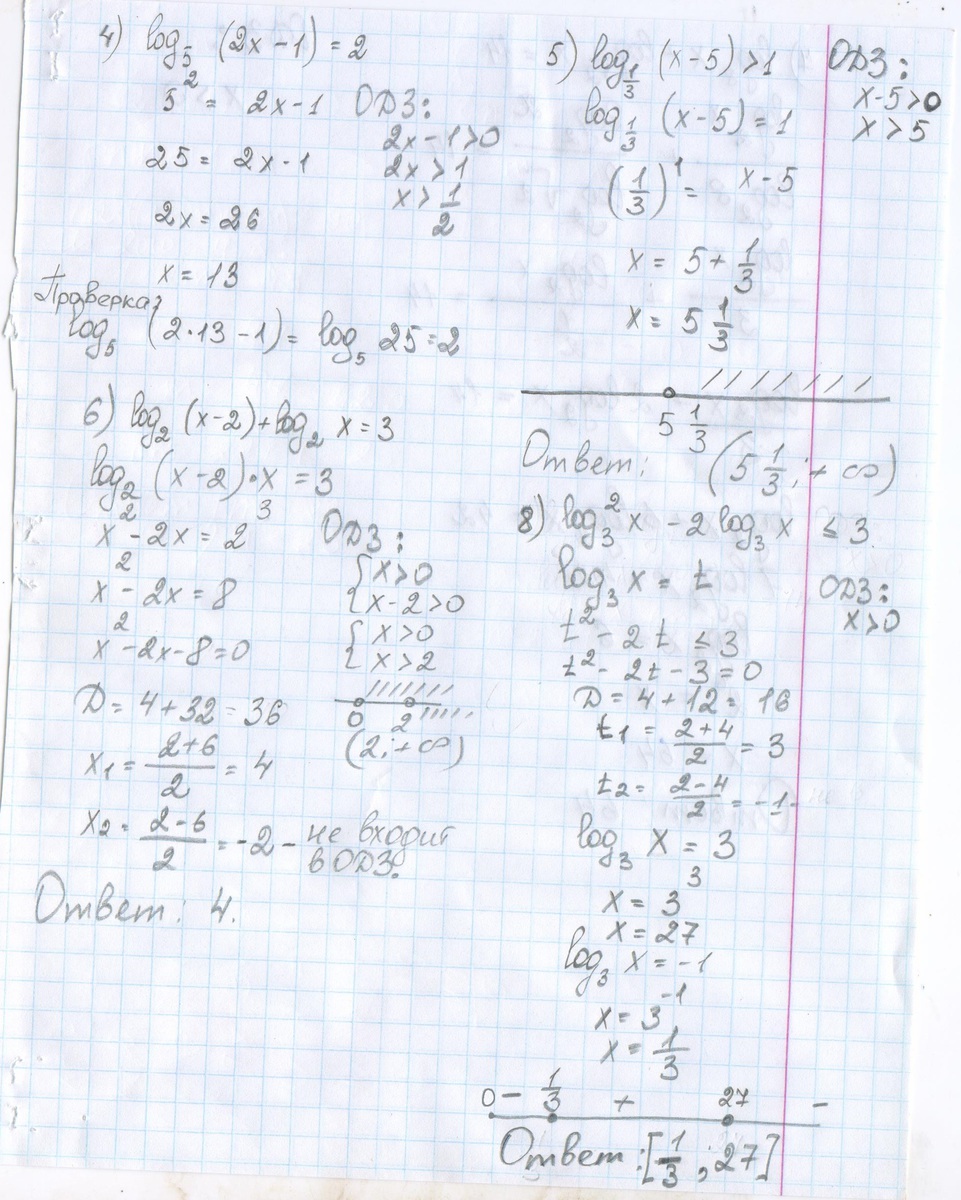 4) log₅ (2x-1) = 2
5² = 2x-1 ОДЗ:
2x-1>0
25 = 2x-1 2x>1
x > 1/2
2x = 26
x = 13
Проверка:
log₅ (2·13-1) = log₅ 25 = 2
6) log₂ (x-2) + log₂ x = 3
log₂ (x-2)·x = 3
x²-2x = 2³ ОДЗ:
x²-2x = 8 {x>0
{x-2>0
x²-2x-8=0 {x>0
{x>2
D = 4+32 = 36 0 2
(2; +∞)
x₁ = (2+6)/2 = 4
x₂ = (2-6)/2 = -2 - не входит
в ОДЗ.
Ответ: 4.
5) log_{1/3} (x-5) > 1 ОДЗ:
x-5>0
log_{1/3} (x-5) = 1 x>5
(1/3)¹ = x-5
x = 5 + 1/3
x = 5 1/3
5 1/3
Ответ: (5 1/3; +∞)
8) log₃² x - 2 log₃ x ≤ 3
log₃ x = t ОДЗ:
x>0
t² - 2t ≤ 3
t² - 2t - 3 = 0
D = 4+12 = 16
t₁ = (2+4)/2 = 3
t₂ = (2-4)/2 = -1
log₃ x = 3
x = 3³
x = 27
log₃ x = -1
x = 3⁻¹
x = 1/3
0 - 1/3 + 27 -
Ответ: [1/3; 27]